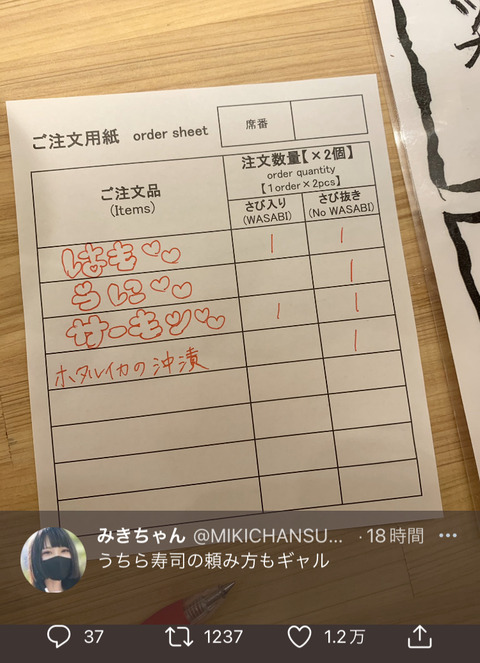 ご注文用紙 order sheet
席番
ご注文品
(Items)
注文数量【×2個】
order quantity
【1order×2pcs】
さび入り
(WASABI)
さび抜き
(No WASABI)
はも♡♡ 1 1
うに♡♡ 1
サーモン♡♡ 1 1
ホタルイカの沖漬 1
みきちゃん @MIKICHANSU... ・18時間
うちら寿司の頼み方もギャル
37 1237 1.2万